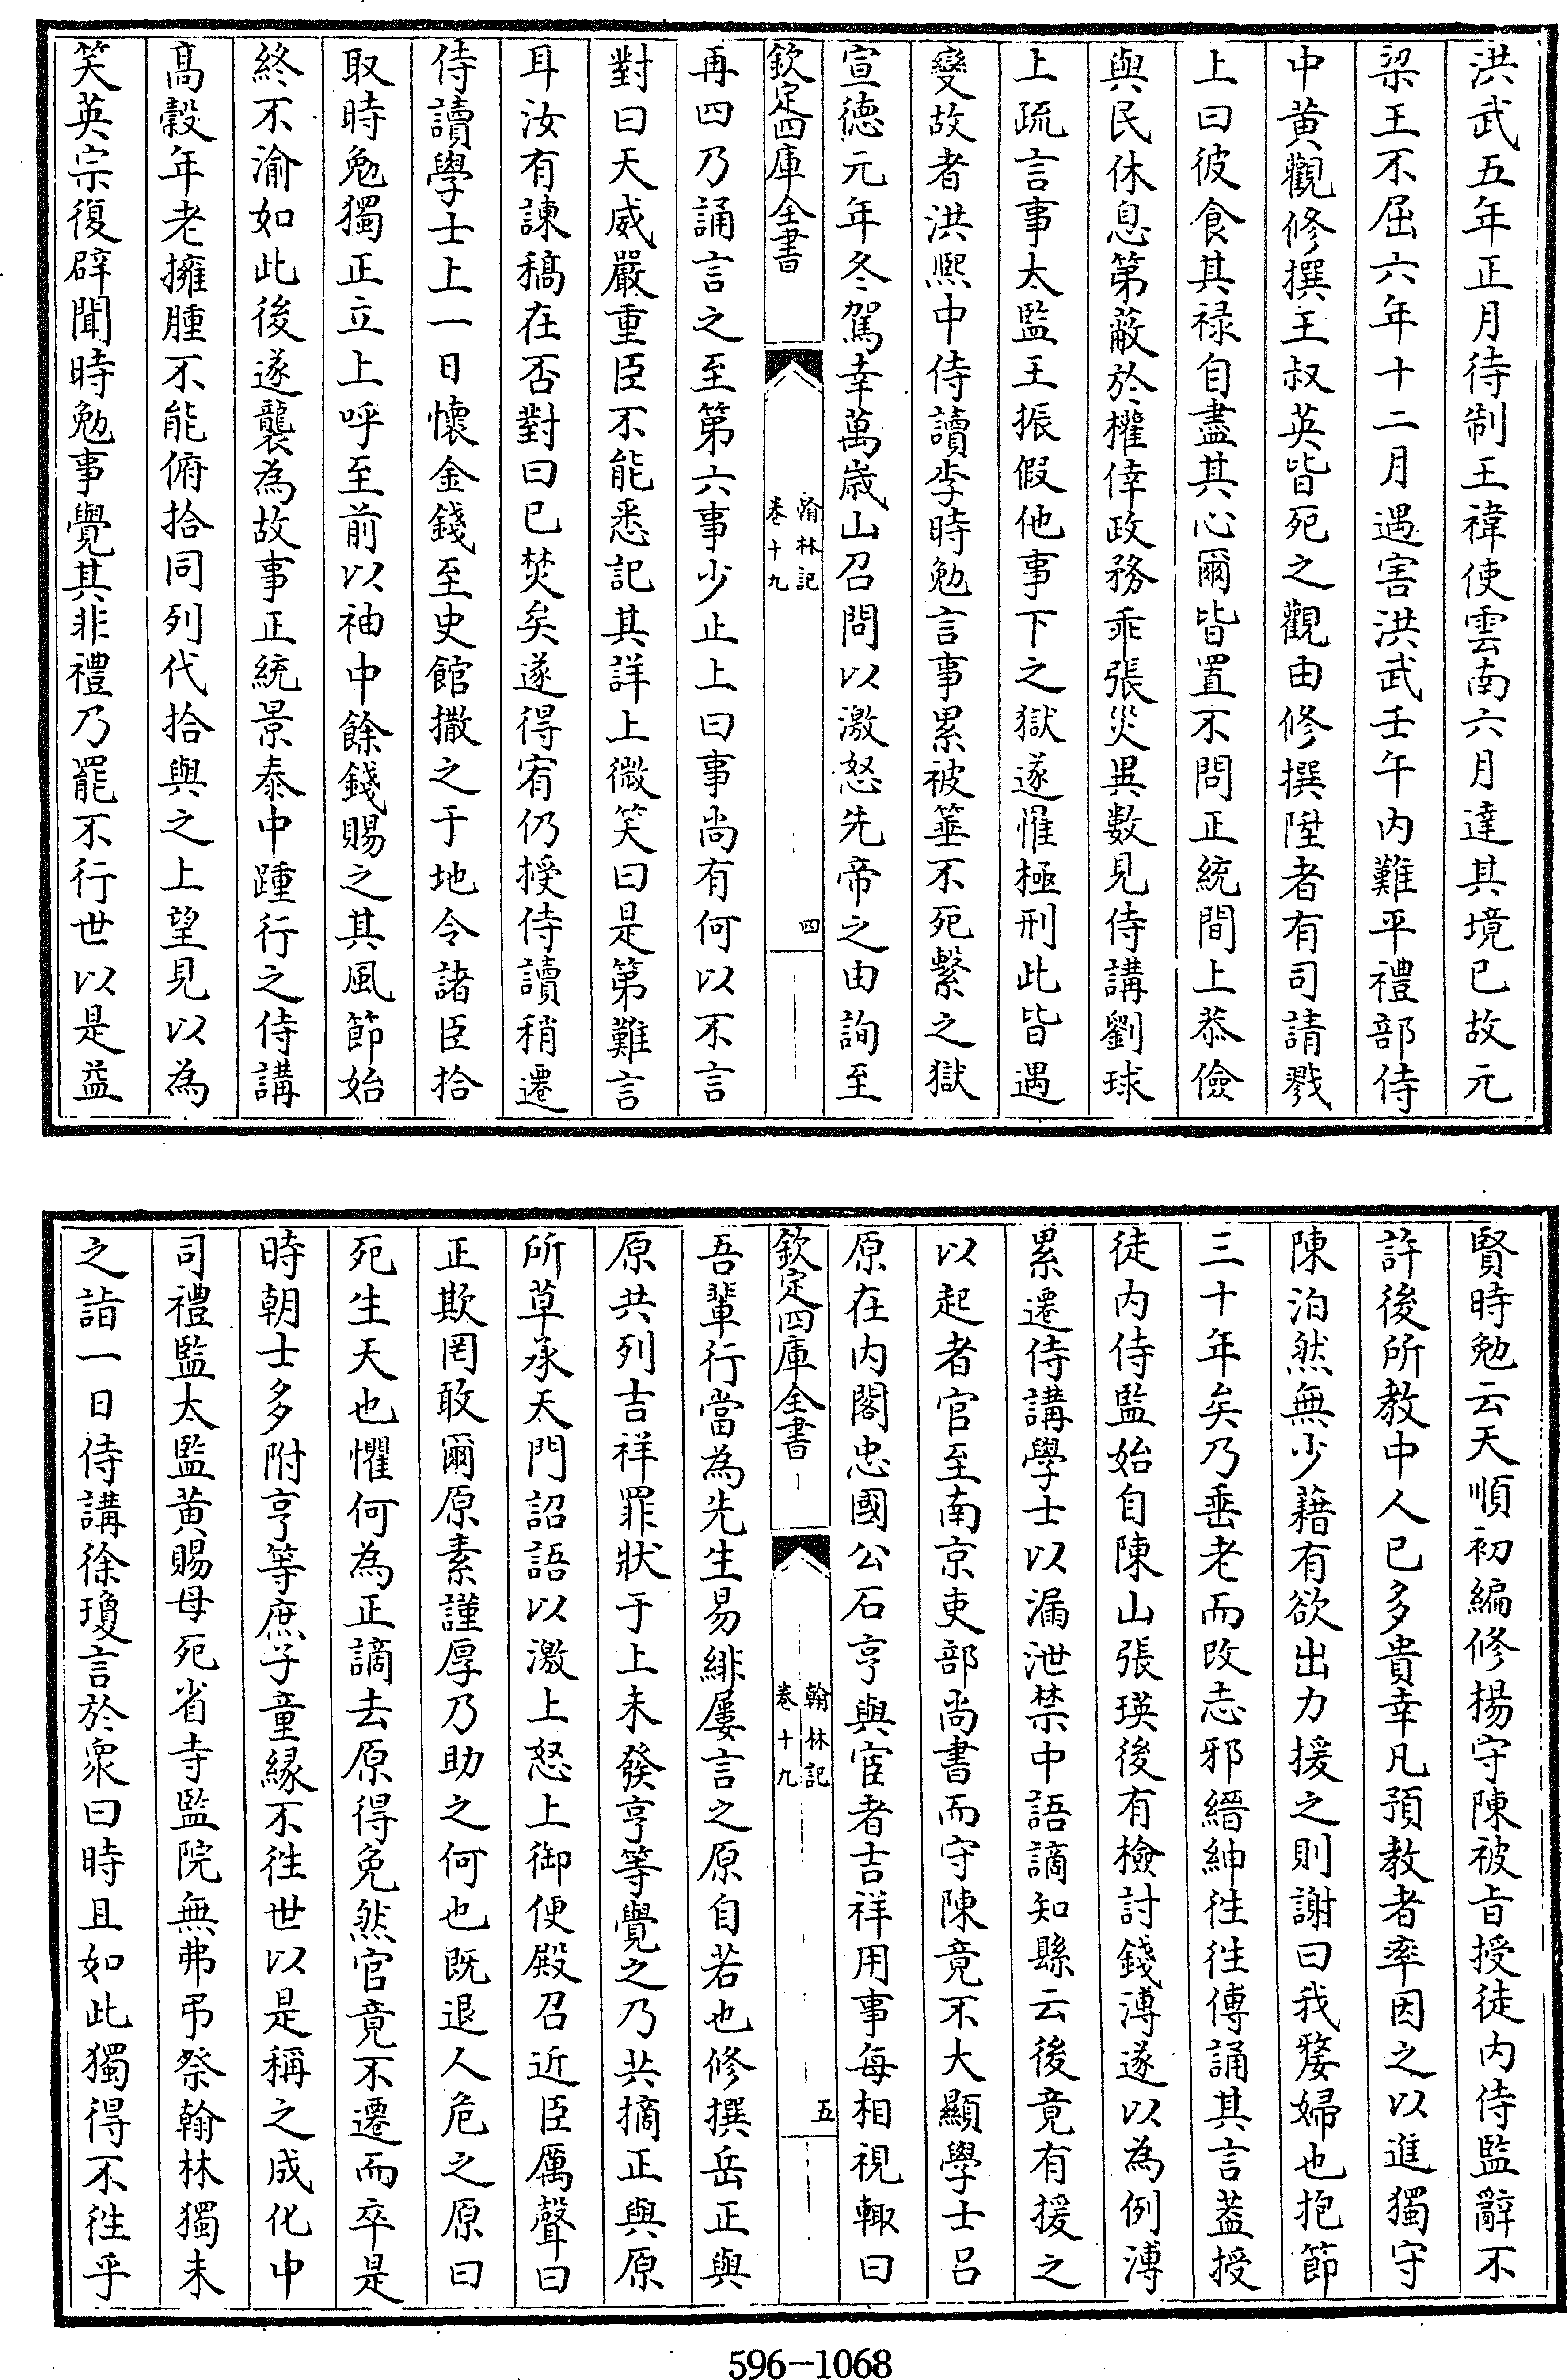 洪武五年正月待制王禕使雲南六月達其境已故元
梁王不屈六年十二月遇害洪武壬午内難平禮部侍
中黄觀修撰王叔英皆死之觀由修撰陞者有司請戮
上曰彼食其禄自盡其心爾皆置不問正統間上恭儉
與民休息第蔽於權倖政務乖張災異數見侍講劉球
上疏言事太監王振假他事下之獄遂惟極刑此皆遇
變故者洪熙中侍讀李時勉言事累被箠不死繫之獄
宣德元年冬駕幸萬歲山召問以激怒先帝之由詢至
欽定四庫全書
翰林記
卷十九
四
再四乃誦言之至第六事少止上曰事尚有何以不言
對曰天威嚴重臣不能悉記其詳上微笑曰是第難言
耳汝有諫稿在否對曰已焚矣遂得宥仍授侍讀稍遷
侍讀學士上一日懷金錢至史館撒之于地令諸臣拾
取時勉獨正立上呼至前以袖中餘錢賜之其風節始
終不渝如此後遂襲為故事正統景泰中踵行之侍講
高穀年老擁腫不能俯拾同列代拾與之上望見以為
笑英宗復辟聞時勉事覺其非禮乃罷不行世以是益
賢時勉云天順初編修楊守陳被㫖授徒内侍監辭不
許後所教中人已多貴幸凡預教者率因之以進獨守
陳泊然無少藉有欲出力援之則謝曰我嫠婦也抱節
三十年矣乃垂老而改志邪縉紳往往傳誦其言葢授
徒内侍監始自陳山張瑛後有檢討錢溥遂以為例溥
累遷侍講學士以漏泄禁中語謫知縣云後竟有援之
以起者官至南京吏部尚書而守陳竟不大顯學士吕
原在内閣忠國公石亨與宦者吉祥用事每相視輙曰
欽定四庫全書
翰林記
卷十九
五
吾輩行當為先生易緋屢言之原自若也修撰岳正與
原共列吉祥罪狀于上未發亨等覺之乃共摘正與原
所草承天門詔語以激上怒上御便殿召近臣厲聲曰
正欺罔敢爾原素謹厚乃助之何也既退人危之原曰
死生天也懼何為正謫去原得免然官竟不遷而卒是
時朝士多附亨等庶子童緣不往世以是稱之成化中
司禮監太監黄賜母死省寺監院無弗弔祭翰林獨未
之詣一日侍講徐瓊言於衆曰時且如此獨得不往乎
596-1068